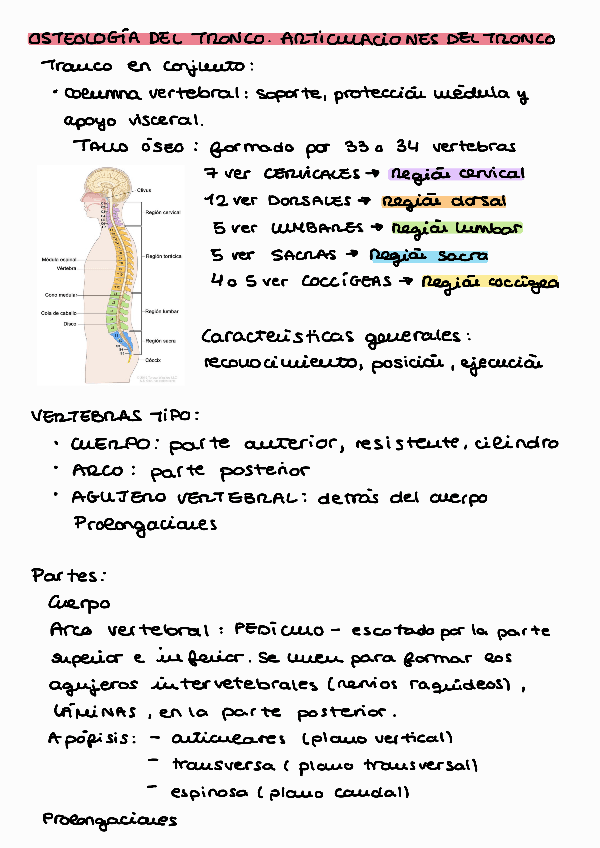 OSTEOLOGÍA DEL TRONCO. ARTICULACIONES DEL TRONCO
Tronco en conjunto:
· Columna vertebral: soporte, protección médula y
apoyo visceral.
TALLO ÓSEO: formado por 33 o 34 vertebras
7 ver CERVICALES → Región cervical
12 ver DORSALES → Región dorsal
5 ver LUMBARES → Región lumbar
5 ver SACRAS → Región sacra
4 o 5 ver COCCÍGEAS → Región coccígea
Clivus
Región cervical
Médula espinal
Región torácica
Vértebra
Cono medular
Cola de caballo
Región lumbar
Disco
Región sacra
Cóccix
Características generales:
reconocimiento, posición, ejecución
VERTEBRAS TIPO:
· CUERPO: parte anterior, resistente, cilindro
· ARCO: parte posterior
· AGUJERO VERTEBRAL: detrás del cuerpo
Prolongaciones
Partes:
Cuerpo
Arco vertebral: PEDÍCULO - escotado por la parte
superior e inferior. Se unen para formar los
agujeros intervetebrales (nervios raquídeos),
LÁMINAS, en la parte posterior.
Apófisis: - articulares (plano vertical)
- transversa (plano transversal)
- espinosa (plano caudal)
Prolongaciones